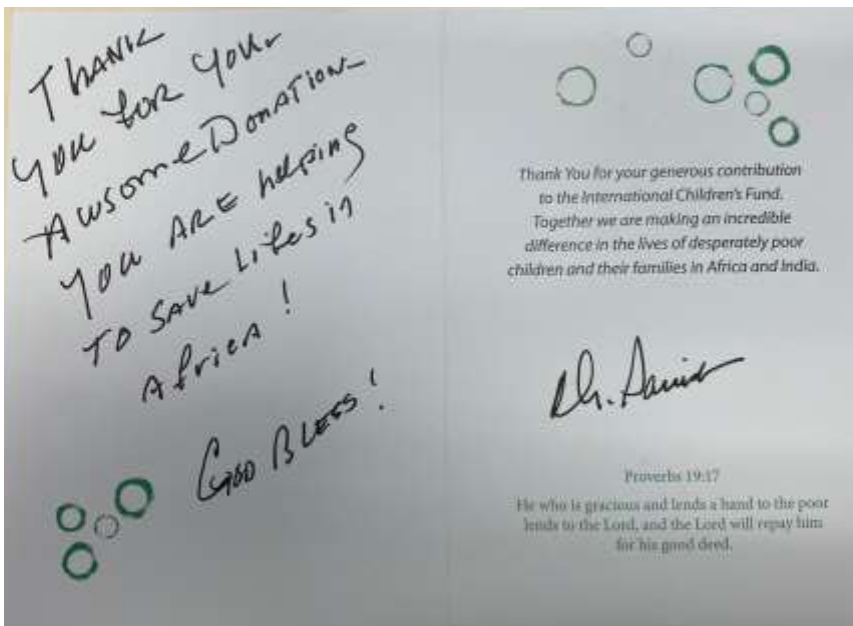 THANK
YOU for YOUR
AwsomE DONATION-
YOU ARE helping
TO SAVE Lifes in
AfricA!
GOD BLESS!
Thank You for your generous contribution
to the International Children's Fund.
Together we are making an incredible
difference in the lives of desperately poor
children and their families in Africa and India.
Proverbs 19:17
He who is gracious and lends a hand to the poor
lends to the Lord, and the Lord will repay him
for his good deed.